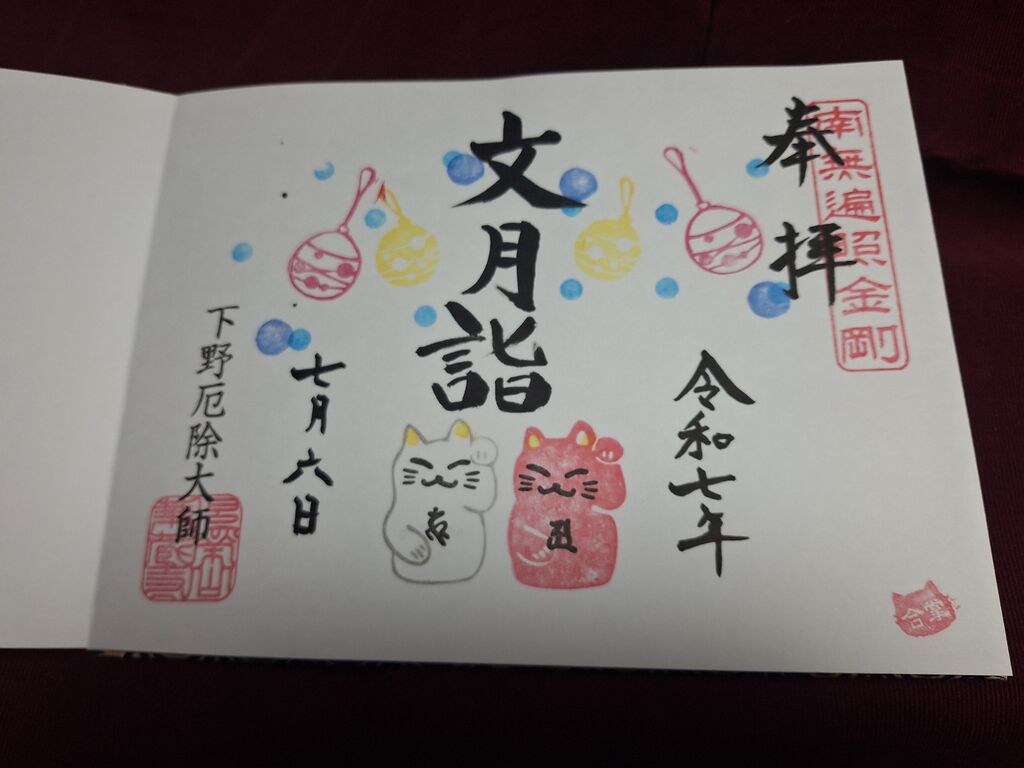 奉拝
南無遍照金剛
令和七年
文月詣
七月六日
下野厄除大師